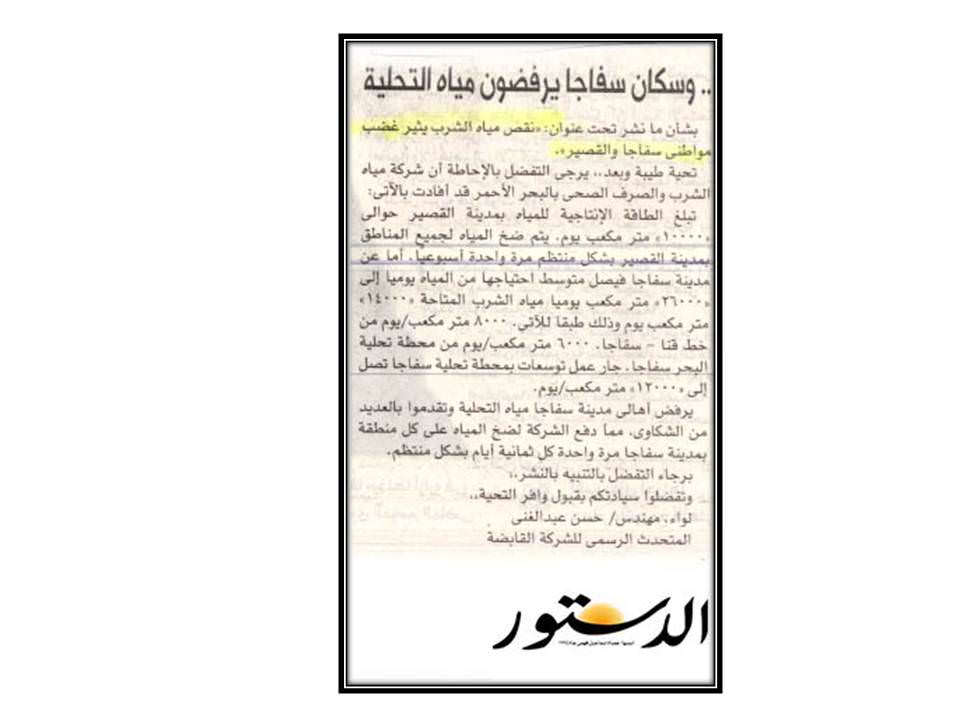 .. وسكان سفاجا يرفضون مياه التحلية
بشأن ما نشر تحت عنوان: «نقص مياه الشرب يثير غضب
مواطنى سفاجا والقصير».
تحية طيبة وبعد،، يرجى التفضل بالإحاطة أن شركة مياه
الشرب والصرف الصحى بالبحر الأحمر قد أفادت بالآتى:
تبلغ الطاقة الإنتاجية للمياه بمدينة القصير حوالى
«١٠٠٠٠» متر مكعب يوم. يتم ضخ المياه لجميع المناطق
بمدينة القصير بشكل منتظم مرة واحدة أسبوعيا. أما عن
مدينة سفاجا فيصل متوسط احتياجها من المياه يوميا إلى
«٢٦٠٠٠» متر مكعب يوميا مياه الشرب المتاحة «١٤٠٠٠»
متر مكعب يوم وذلك طبقا للآتي. ٨٠٠٠ متر مكعب/يوم من
خط قنا - سفاجا. ٦٠٠٠ متر مكعب/يوم من محطة تحلية
البحر سفاجا. جار عمل توسعات بمحطة تحلية سفاجا تصل
إلى «١٢٠٠٠» متر مكعب/يوم.
يرفض أهالى مدينة سفاجا مياه التحلية وتقدموا بالعديد
من الشكاوى، مما دفع الشركة لضخ المياه على كل منطقة
بمدينة سفاجا مرة واحدة كل ثمانية أيام بشكل منتظم.
برجاء التفضل بالتنبيه بالنشر،،
وتفضلوا سيادتكم بقبول وافر التحية،،
لواء. مهندس/ حسن عبدالغنى
المتحدث الرسمى للشركة القابضة
الدستور